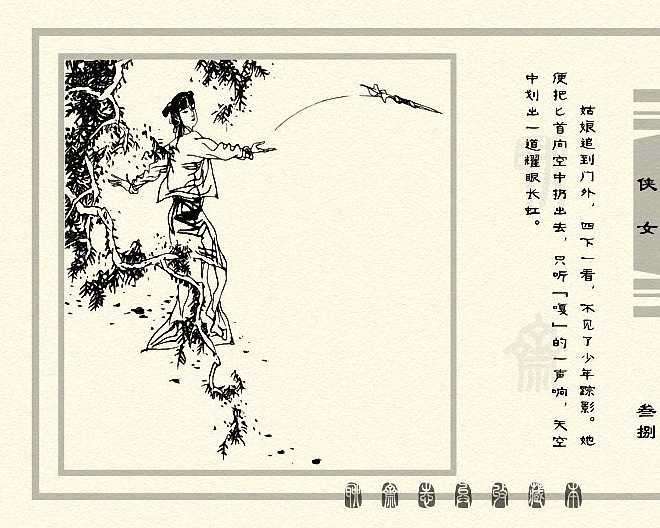 姑娘追到门外，四下一看，不见了少年踪影。她
便把匕首向空中扔出去，只听「嘎」的一声响，天空
中划出一道耀眼长虹。
侠女
叁捌
聊斋志异收藏本